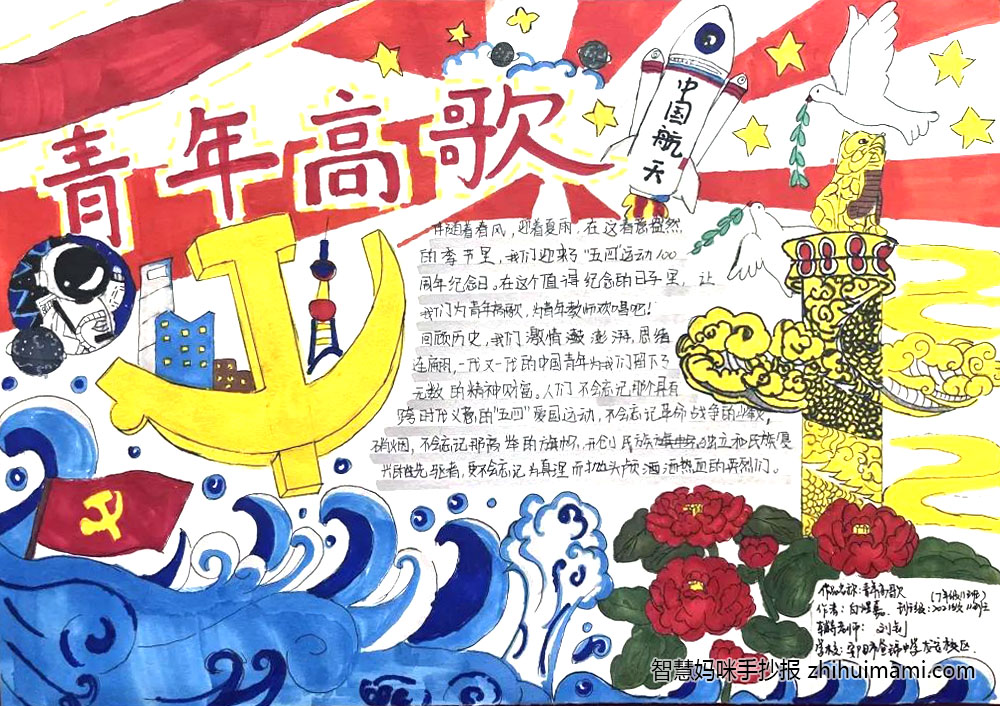 青年高歌
中国航天
伴随着春风，迎着夏雨，在这春意盎然
的季节里，我们迎来"五四"运动100
周年纪念日。在这个值得纪念的日子里，让
我们为青年高歌，为青年教师欢唱吧！
回顾历史，我们激情澎湃，思绪
连翩，一代又一代的中国青年为我们留下了
无数的精神财富。人们不会忘记那个具有
跨时代义意的"五四"爱国运动，不会忘记革命战争的
硝烟，不会忘记那高举的旗帜，
先驱者，更不会忘记为真理而抛头颅洒热血的英烈们。
作品名称：青年高歌
作者：
指导老师：
学校：
智慧妈咪手抄报 zhihuimami.com